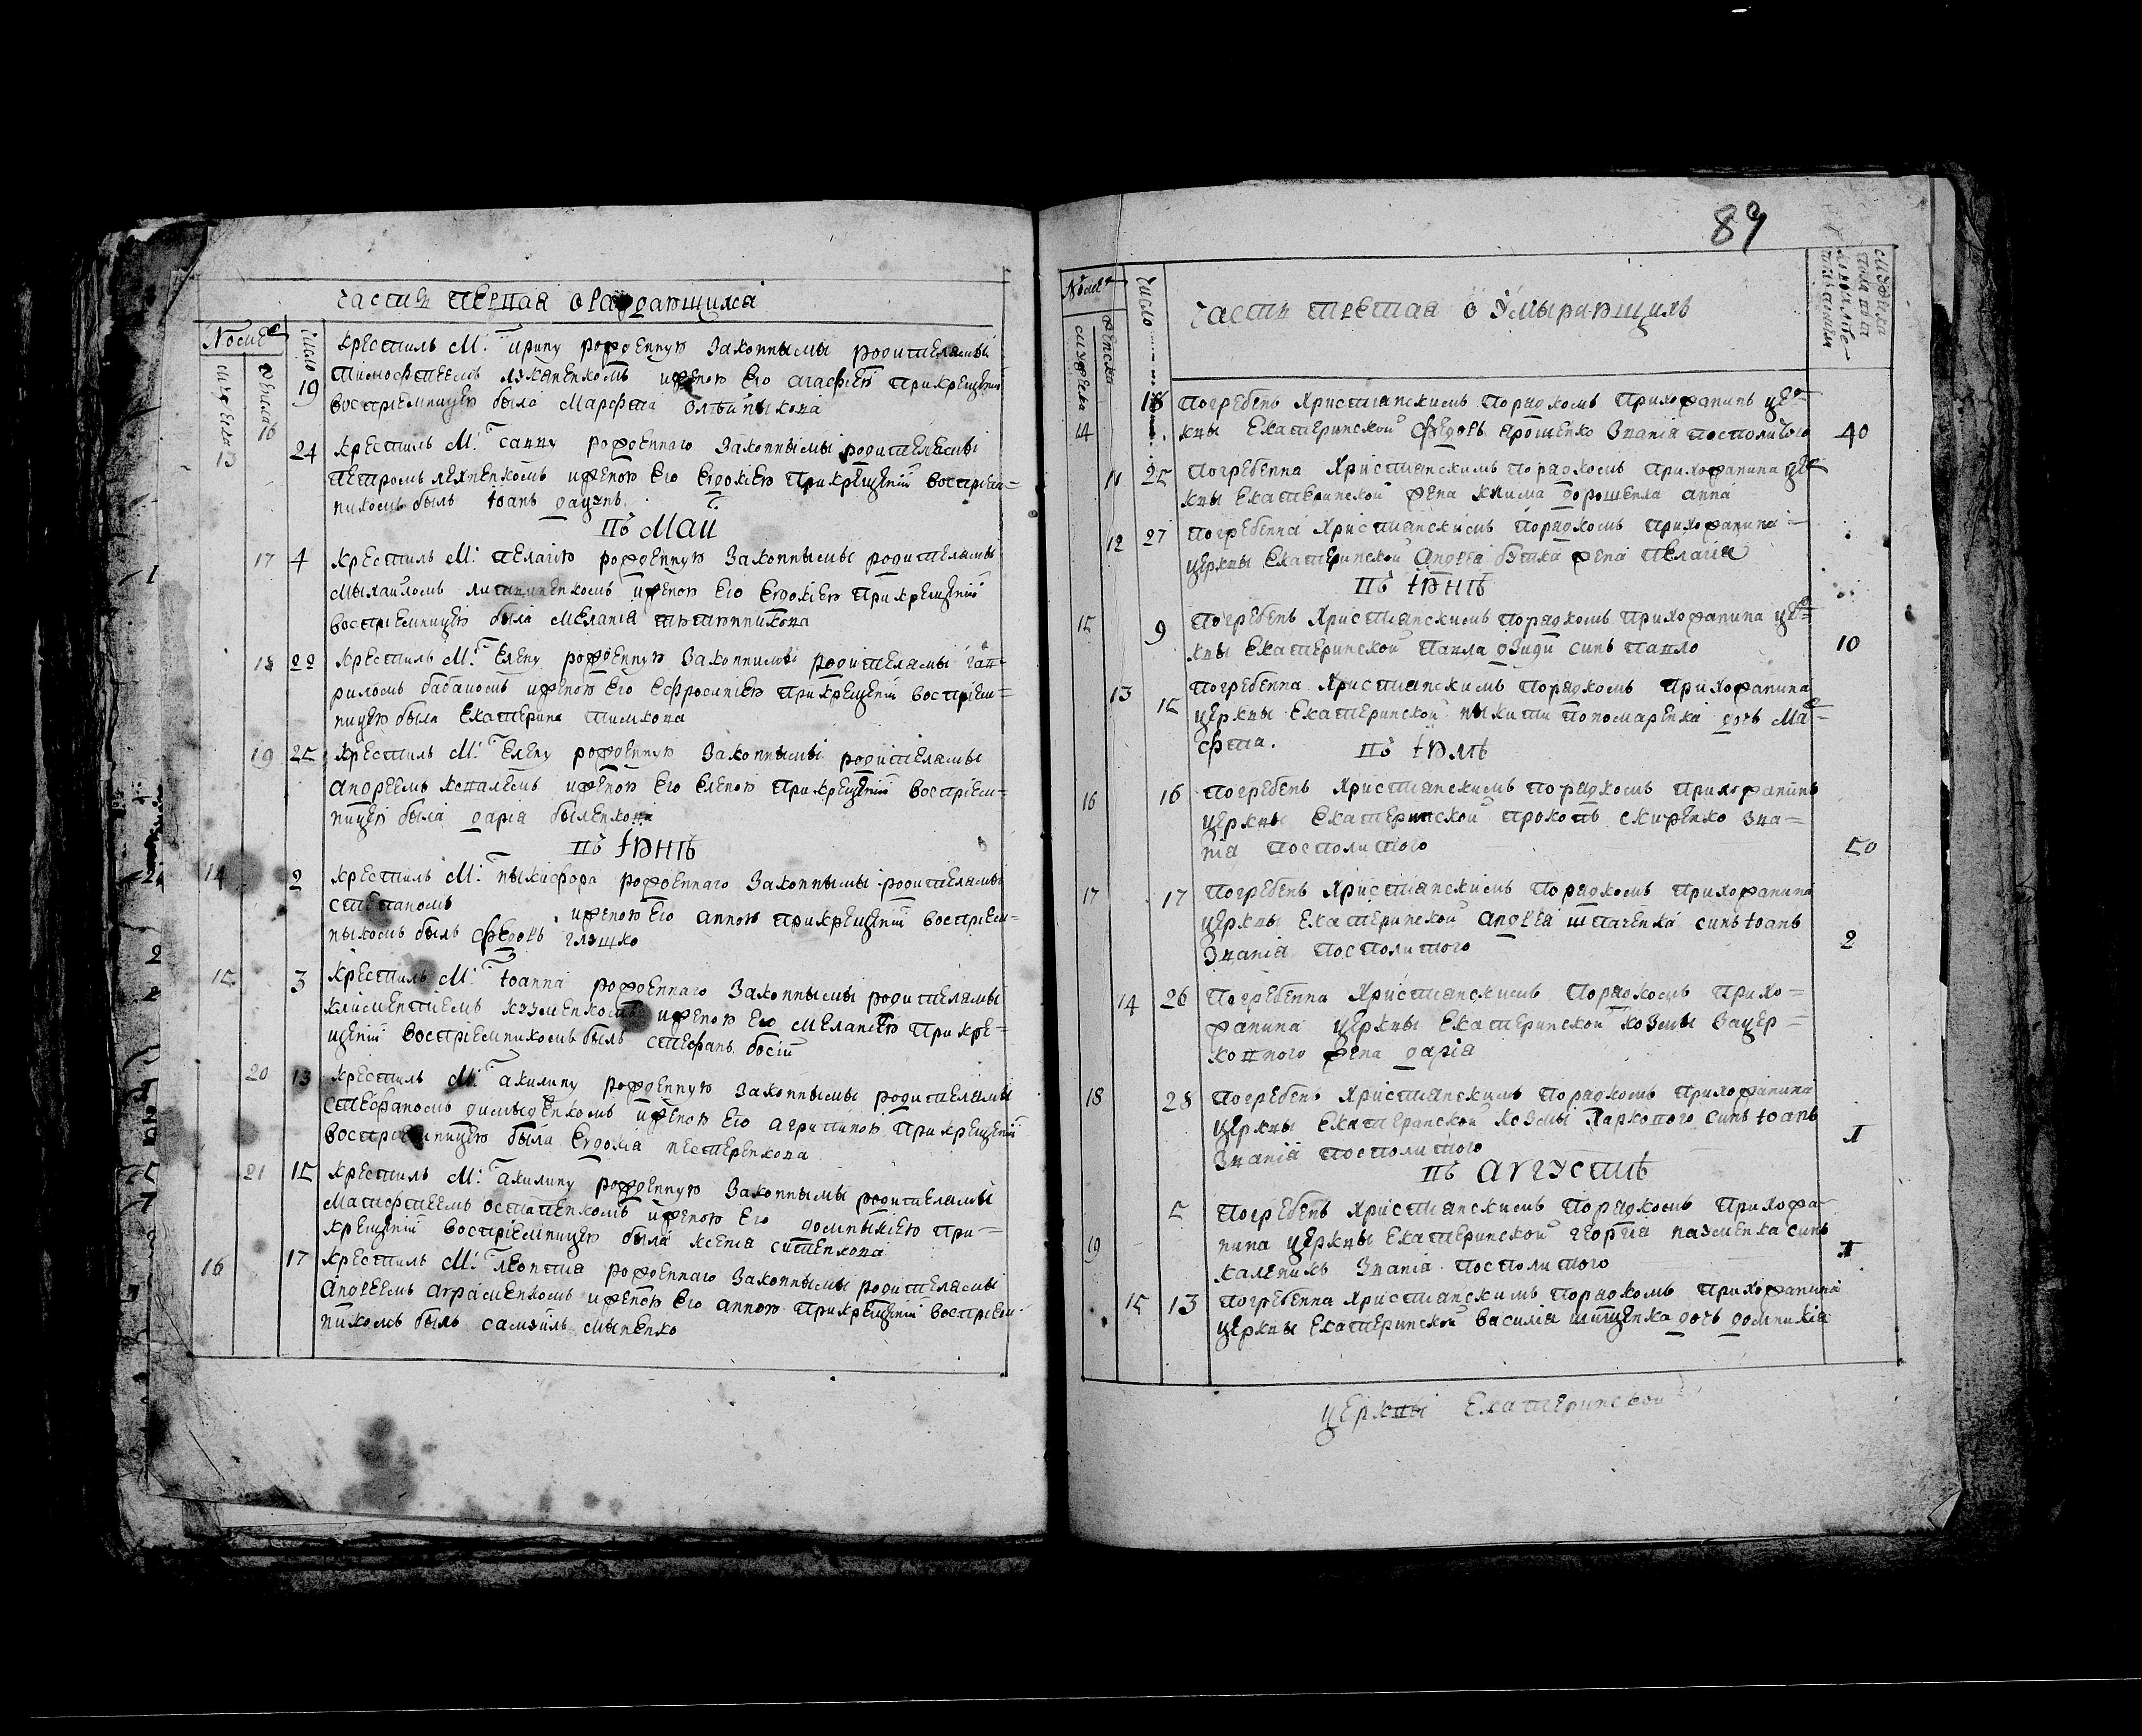 часть первая о раждающихся
№ мужеска женска число
19 крестилъ М: ирину рожденную Законнымы родителямы
тимофтеемъ лукяненкомъ и женою Его агафиею при крещении
16 восприемницею была Марфта олѣйныкова
13 24 крестилъ М: савву рожденнаго Законнымы родителямы
петромъ ляхненкомъ и женою Его Евдокиею при крещении восприем=
никомъ былъ иоанъ дацунъ.
въ Маи
17 4 крестилъ М: пелагию рожденную Законнымы родителямы
мыхаиломъ литвиненкомъ и женою Его Евдокиею при крещении
восприемницею была Меланіа тютюнникова
18 22 крестилъ М: Елену рожденную Законнимы родителямы гав=
риломъ бабакомъ и женою Его Ефросиниею при крещении восприем=
ницею была Екатерина тимкова
19 25 крестилъ М: Елену рожденную Законнымы родителямы
андреемъ и женою Его Еленою при крещении восприем=
ницею была даріа быленкова
въ іюнѣ
14 2 крестилъ М: ныкифора рожденнаго Законнымы родителямы
степаномъ и женою Его анною при крещении восприем=
ныкомъ былъ федоръ глушко
15 3 крестилъ М: иоанна рожденнаго Законнымы родителямы
клименттиемъ кузменкомъ и женою Его меланиею при кре=
щении восприемникомъ былъ стефанъ босій
20 13 крестилъ М: акилину рожденную Законнымы родителямы
стефаномъ димыденкомъ и женою Его агрипиною при крещении
восприемницею была Евдокіа нестеренкова
21 15 крестилъ М: акилину рожденную Законнымы родителямы
матофтеемъ остапенкомъ и женою Его домныкиею при=
крещении восприемницею была ксеніа ситенкова
16 17 крестилъ М: леонтиа рожденнаго Законнымы родителямы
андреемъ аврамен­комъ и женою Его анною при крещении восприем=
никомъ былъ самуилъ мыненко
89
№ мужеска женска число
часть третая о умырающихъ
14 18 погребенъ Христианскимъ порядкомъ прихожанинъ цер=
квы Екатеринской федоръ ярошенко Званіа посполитого 40
11 25 погребенна Христианскимъ порядкомъ прихожанина цер
квы Екатеринской жена клима дорошенка анна
12 27 погребенна Христианскимъ порядкомъ прихожанина
церквы Екатеринской андреа бутка жена пелагиа
въ іюнѣ
15 9 погребенъ Христианскимъ порядкомъ прихожанина цер=
квы Екатеринской павла дзиди синъ павло 10
13 15 погребенна Христианскимъ порядкомъ прихожанина
церквы Екатеринской ныкити пономаренка дочь мар=
фта.
въ іюлѣ
16 16 погребенъ Христианскимъ порядкомъ прихожанинъ
церквы Екатеринской прокопъ скиженко зва=
ніа посполитого 50
17 17 погребенъ Христианскимъ порядкомъ прихожанина
церквы Екатеринской андреа шпаченка синъ иоанъ
Званіа посполитого 2
14 26 погребенна Христианскимъ порядкомъ прихо=
жанина церквы Екатеринской козмы Зацер=
ковного жена даріа
18 28 погребенъ Христианскимъ порядкомъ прихожанина
церквы Екатеринской козмы Харкового синъ иоанъ
Званіа посполитого 1
въ августѣ
19 5 погребенъ Христианскимъ порядкомъ прихожа=
нина церквы Екатеринской георгиа науменка синъ
каленикъ Званіа посполитого 1
15 13 погребенна Христианскимъ порядкомъ прихожанина
церквы Екатеринской василиа митченка дочь домникіа
церквы Екатеринской